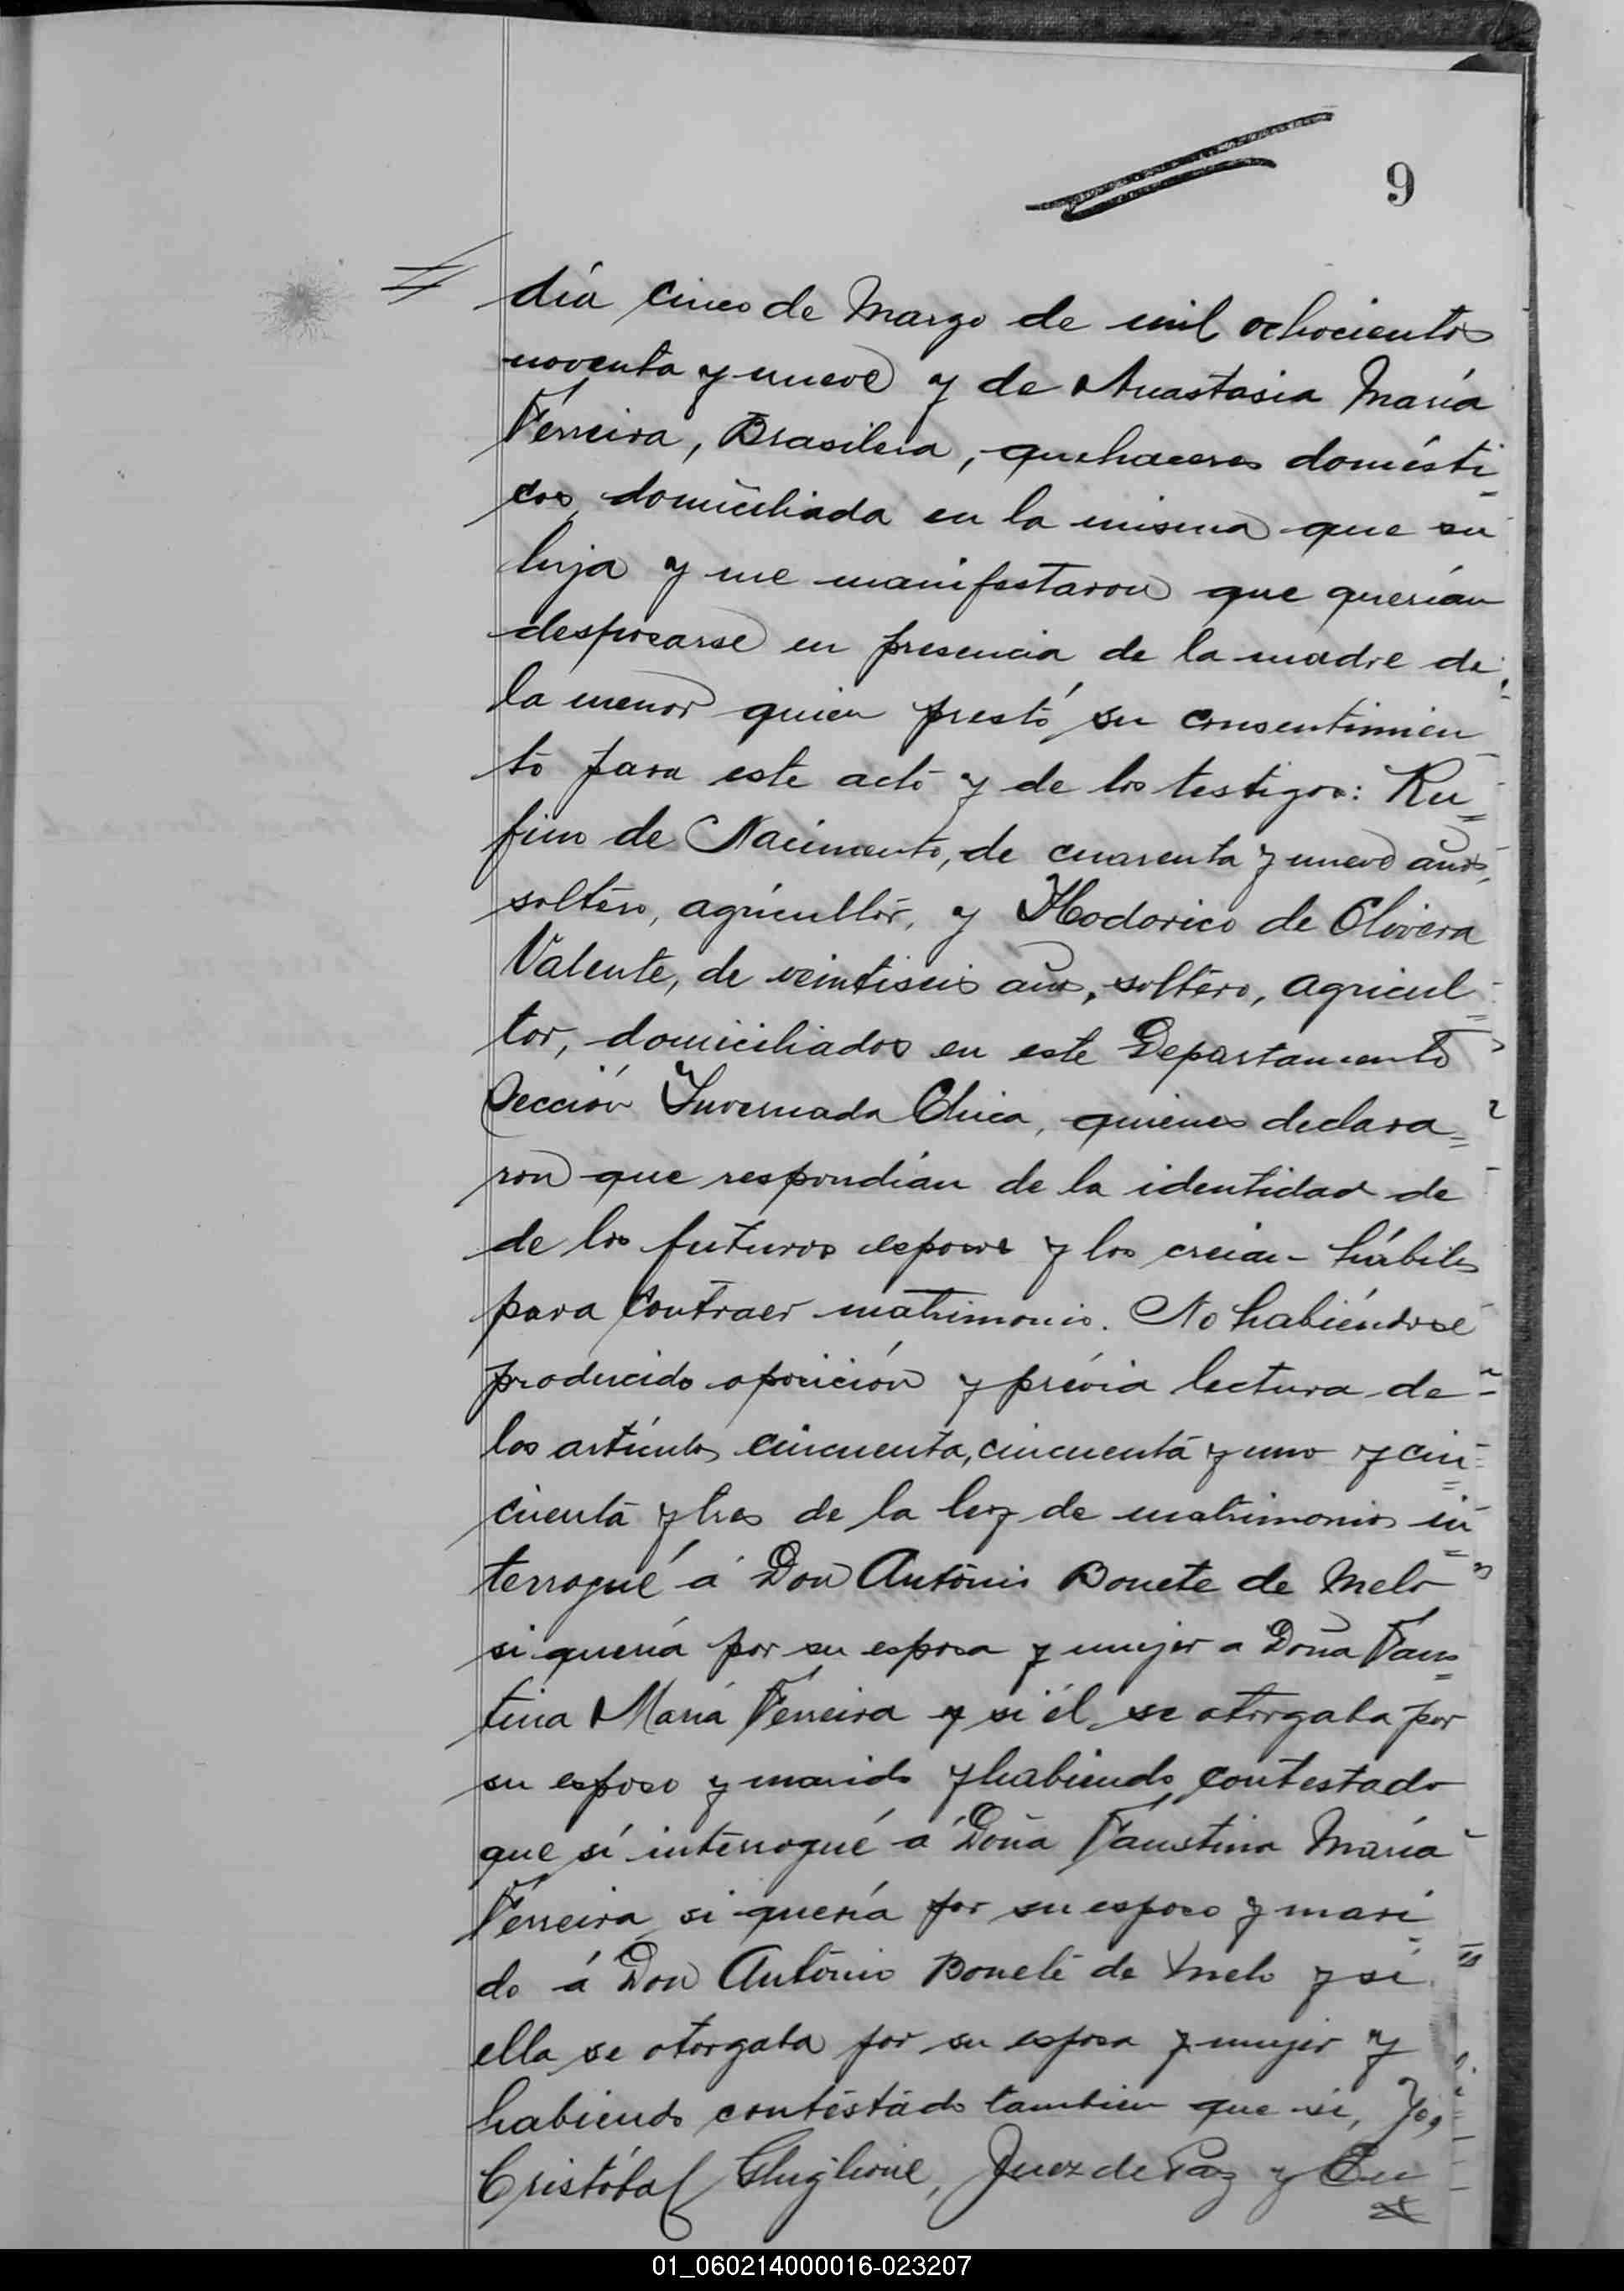 9
día cinco de Marzo de mil ochocientos
noventa y nueve y de Anastasia María
Ferreira, Brasilera, quehaceres domésti
cos, domiciliada en la misma que su
hija y me manifestaron que querían
desposarse en presencia de la madre de
la menor quien prestó su consentimien
to para este acto y de los testigos: Ru=
fino de Nacimento, de cuarenta y nueve años,
soltero, agricultor, y Hodorico de Olivera
Valente, de veintiseis años, soltero, agricul=
tor, domiciliados en este Departamento
Sección Invernada Chica, quienes declara=
ron que respondían de la identidad de
de los futuros esposos y los creian hábiles
para contraer matrimonio. No habiéndose
producido oposición y prévia lectura de
los artículos cincuenta, cincuenta y uno y cin=
cuenta y tres de la ley de matrimonio in=
terrogué á Don Antonio Bonete de Melo
si quería por su esposa y mujer a Doña Faus=
tina María Ferreira y si él se otorgaba por
su esposo y marido y habiendo contestado
que sí interrogué á Doña Faustina María
Ferreira si quería por su esposo y mari
do á Don Antonio Bonete de Melo y si
ella se otorgaba por su esposa y mujer y
habiendo contestado tambien que si, Yo,
Cristóbal Ghiglione, Juez de Paz y En
01_060214000016-023207